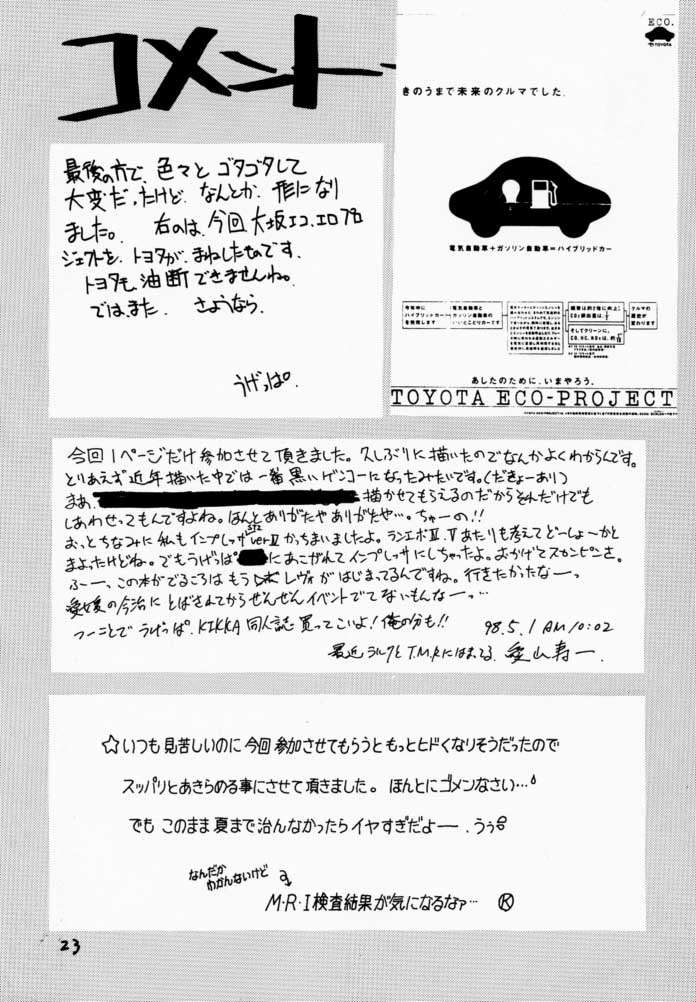 コメント
最後の方で、色々と ゴタゴタして
大変だったけど なんとか、形になり
ました。 右のは、今回 大坂エコ、エロプロ
ジェクトを、トヨタが、まねしたものです、
トヨタも、油断できませんね。
では、また さようなら、
うげっぱ。
ECO.
TOYOTA
きのうまで未来のクルマでした。
電気自動車+ガソリン自動車=ハイブリッドカー
今年中に
ハイブリッドカー
を発売します
電気自動車と
ガソリン自動車の
いいとこどりカーです
燃費は約2倍に向上。
CO2排出量は、1/2
そしてクリーンに。
CO、HC、NOxは、約1/10
クルマの
歴史が
変わります
あしたのために、いまやろう。
TOYOTA ECO-PROJECT
今回1ページだけ参加させて頂きました。久しぶりに描いたのでなんかよくわからんです。
とりあえず近年描いた中では一番黒いゲンコーになったみたいです。(だきょーあり)
まあ、 描かせてもらえるのだからそれだけでも
しあわせってもんですよね。ほんとありがたやありがたや…。ちゅーの!!
おっとちなみに私もインプレッサ STi verⅡ かっちまいましたよ。ランエボⅣ.Ⅴあたりも考えてどーしょーかと
まよったけどね。でもうげっぱ にあこがれてインプレッサにしちゃったよ。おかげでスカンピンさ。
ふー、この本がでるころはもう レヴォがはじまってるんですね。行きたかったなーっ
愛媛の今治にとばされてからぜんぜんイベントでてないもんなーっ…
つーことで うげっぱ、KIKKA 同人誌買ってこいよ!俺の分も!! 98.5.1 AM10:02
最近 ラルクと T.M.Rにはまってる 寿一.
☆いつも見苦しいのに今回参加させてもらうともっとヒドくなりそうだったので
スッパリとあきらめる事にさせて頂きました。ほんとにゴメンなさい…
でも このまま夏まで治んなかったらイヤすぎだよー、うぅ
なんだか
わかんないけど
M・R・I検査結果が気になるなァ… Ⓚ
23